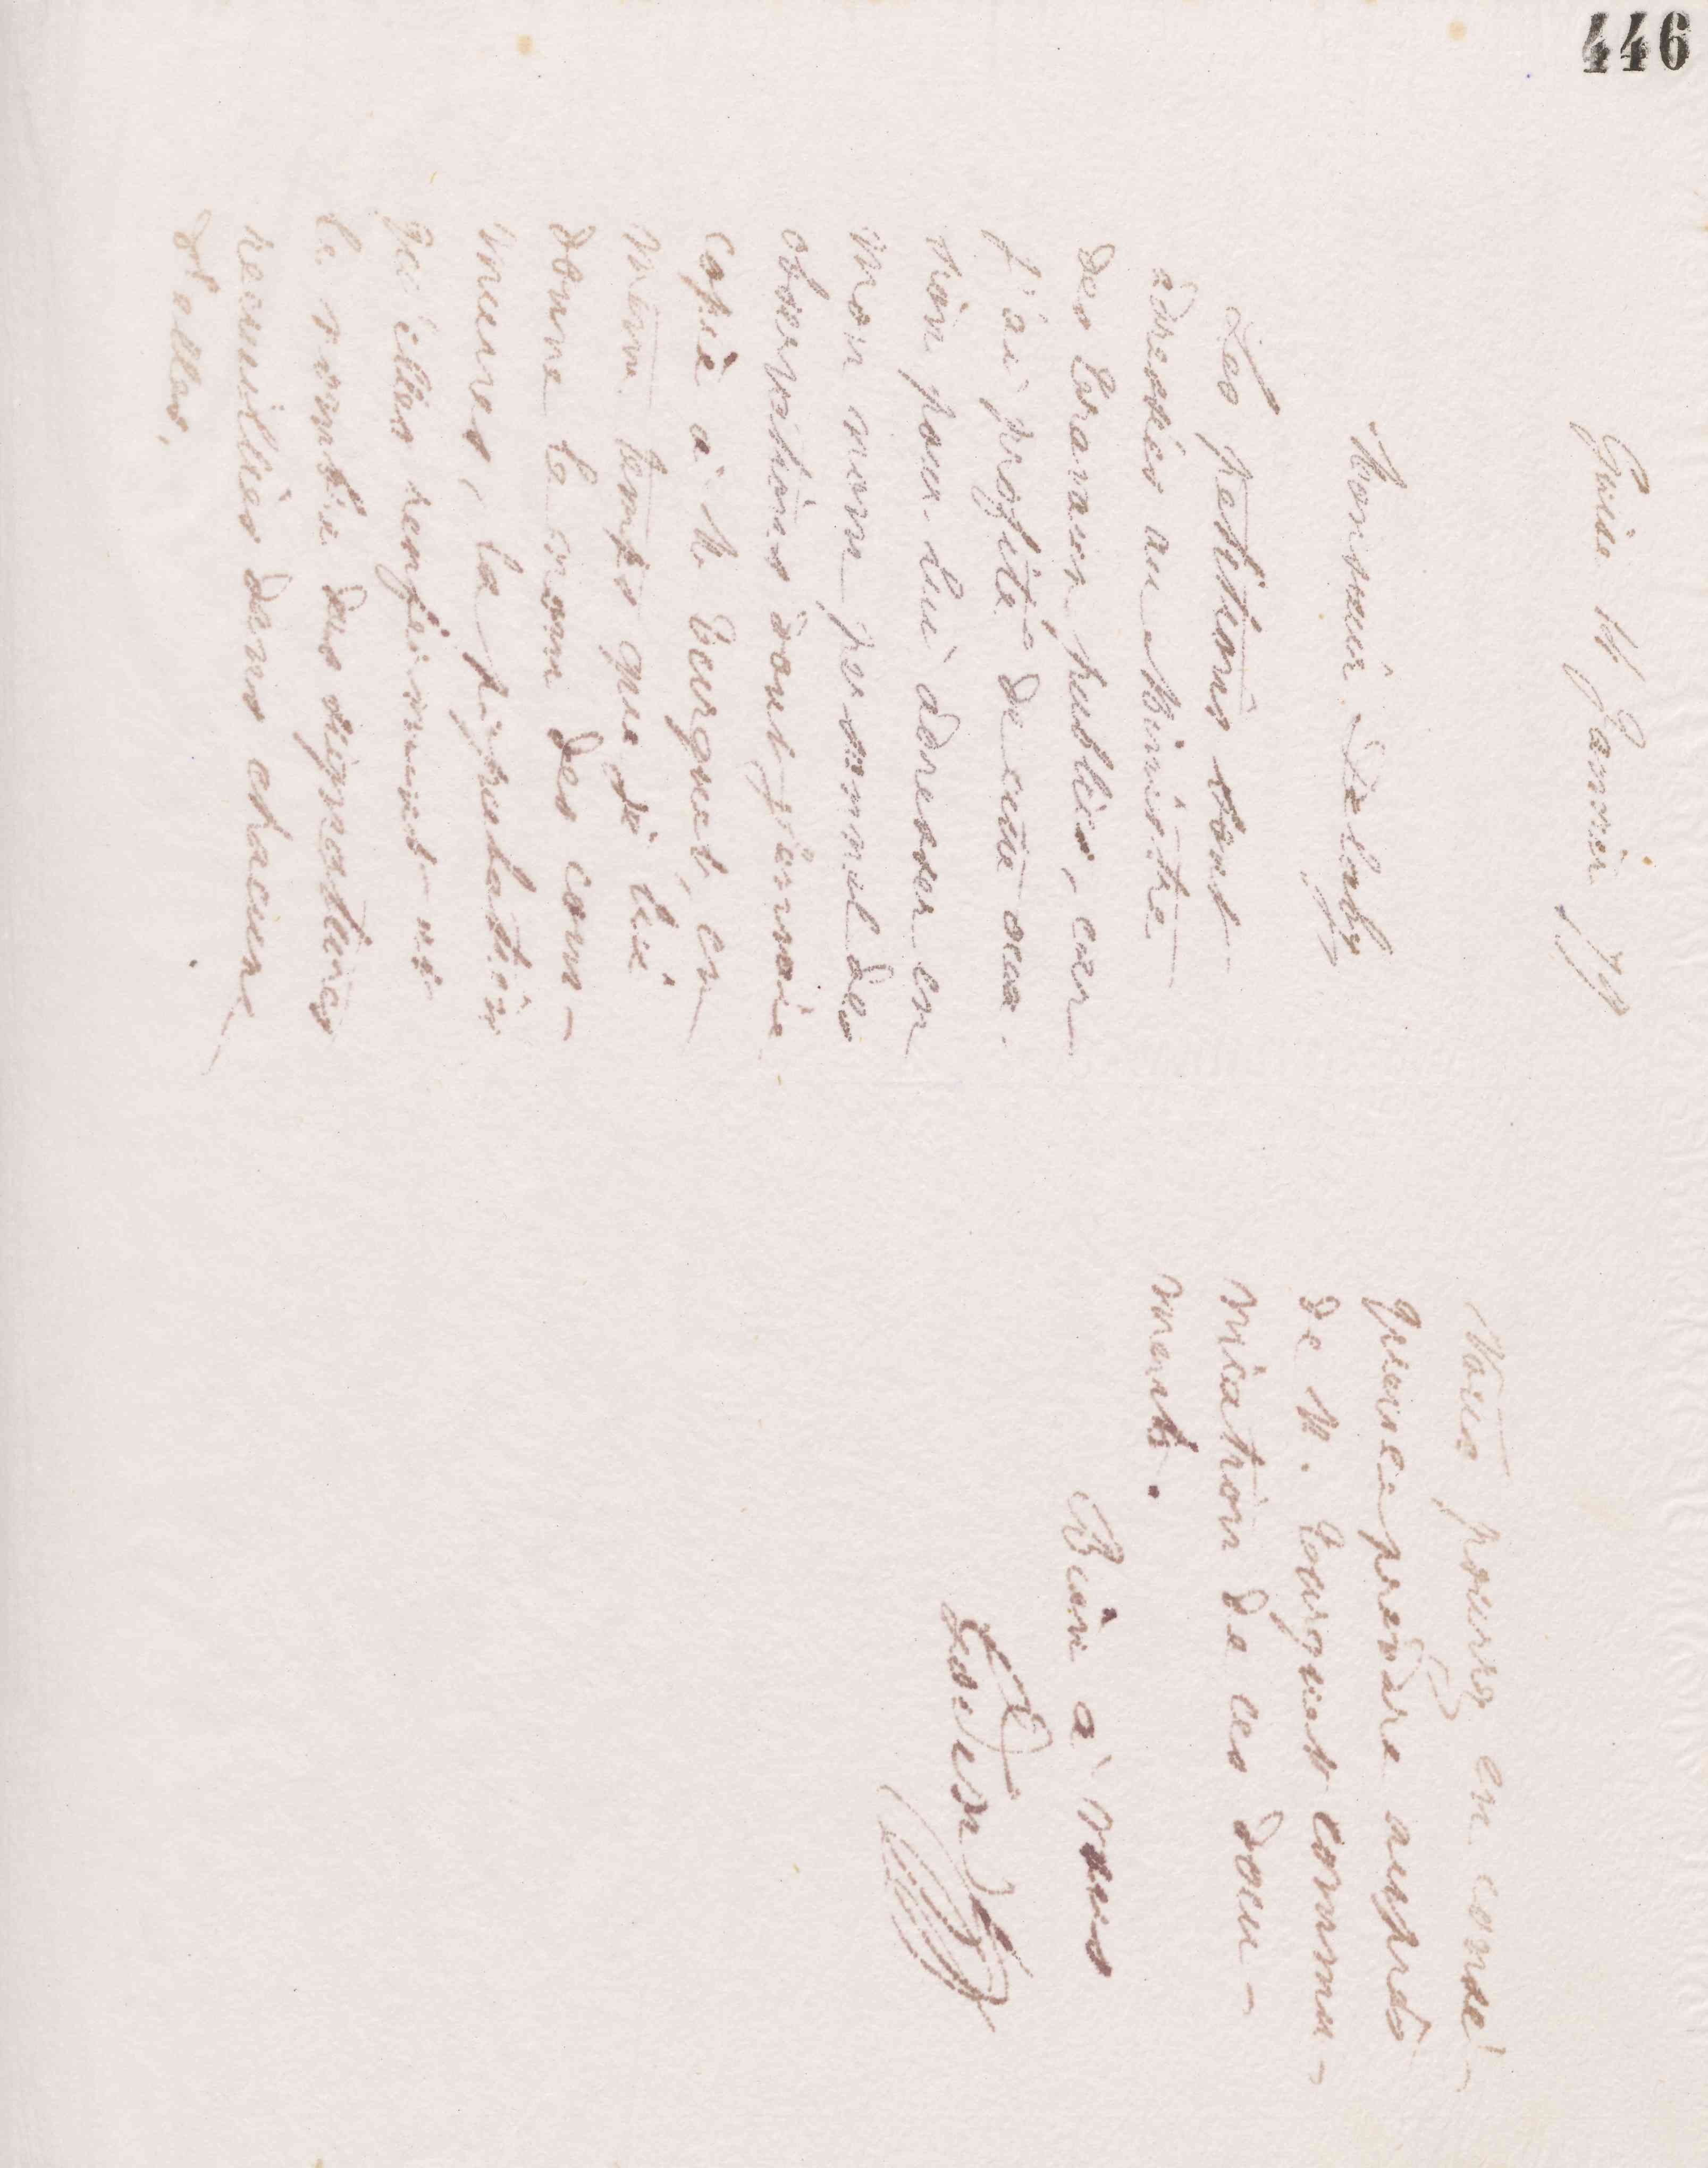 446
Guise 16 Janvier 79
Monsieur Delorby
Les pétitions sont
adressées au Ministre
des travaux publics, car
j'ai profité de cette occa-
sion pour lui adresser en
mon nom personnel des
observations dont j'envoie
copie à M. Turquet, en
même temps que je lui
donne le nom des com-
munes, la population
qu'elles renferment et
le nombre des signatures
recueillies dans chacune
d'elles.
Vous pourrez en consé-
quence prendre auprès
de M. Turquet commu-
nication de ces docu-
ments.
Bien à vous
Godin